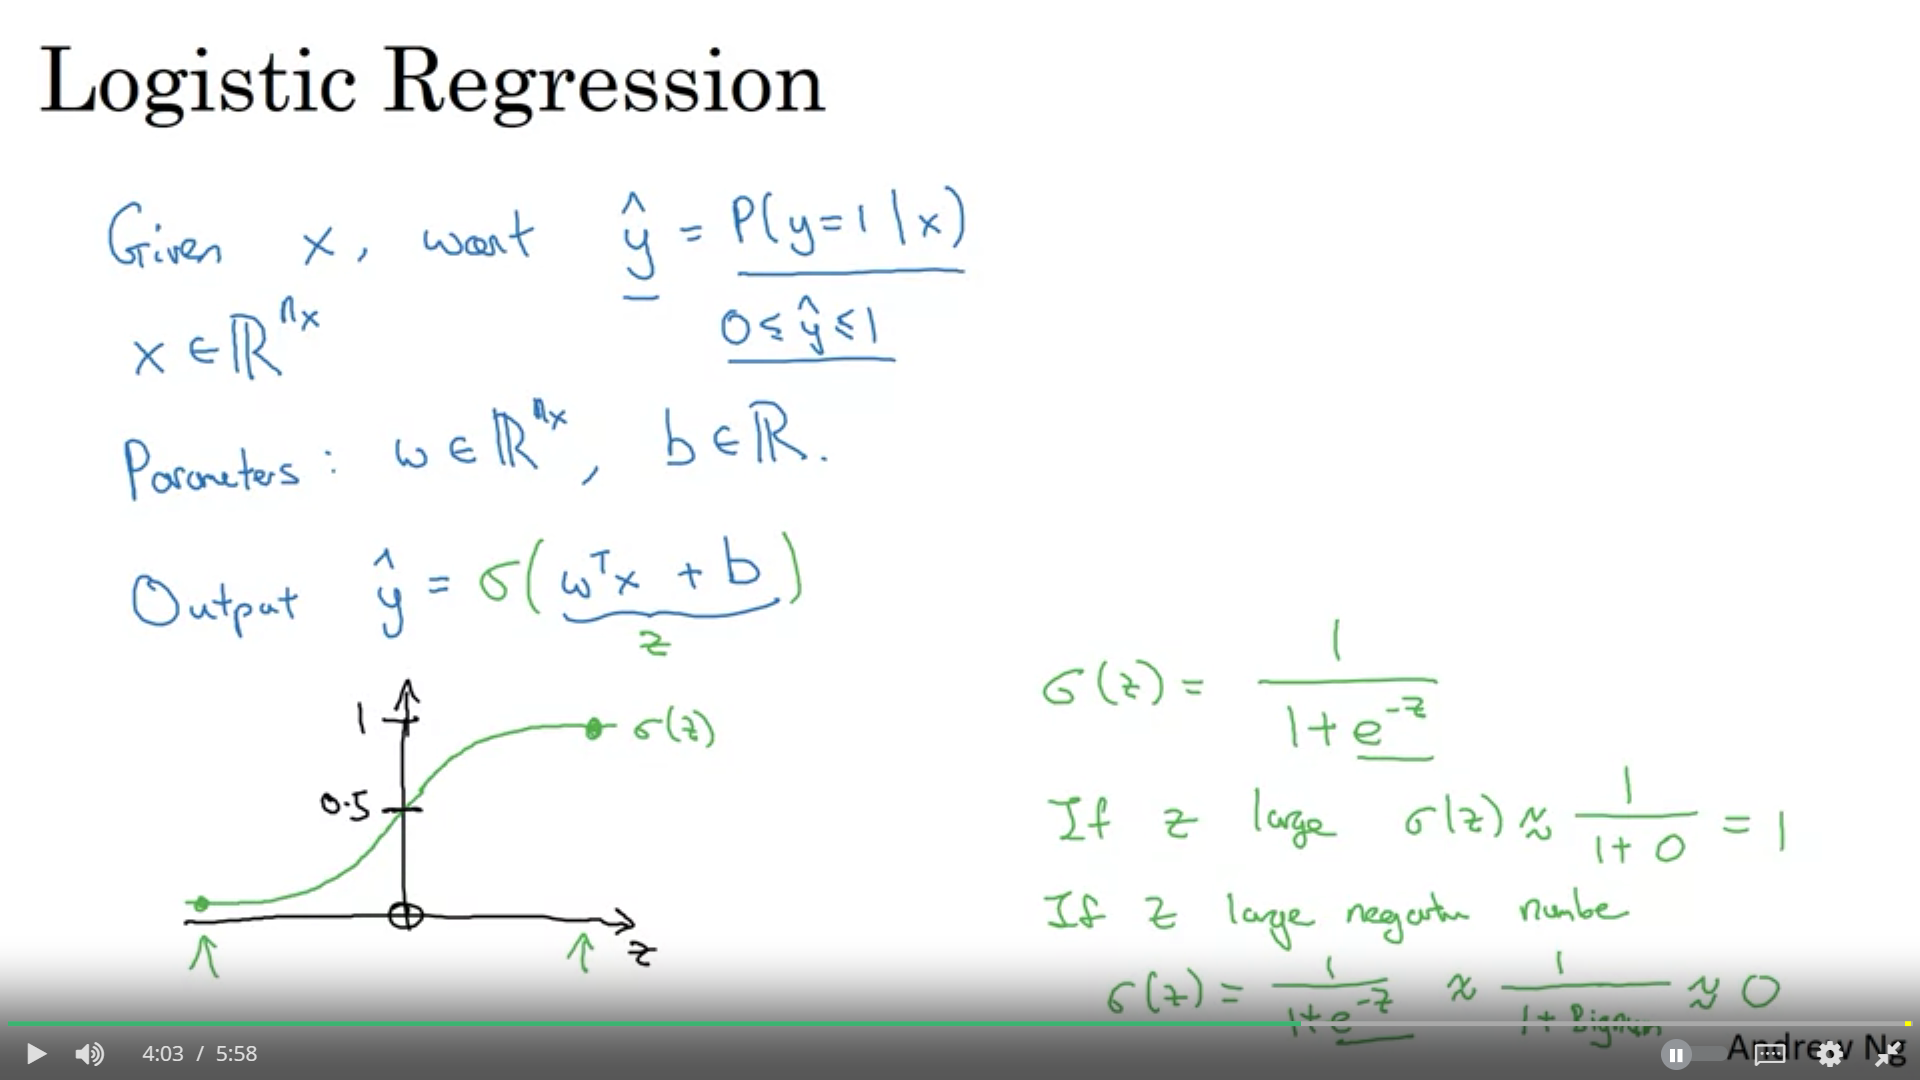 Logistic Regression
Given x, want ŷ = P(y=1|x)
x ∈ ℝ^nx 0 ≤ ŷ ≤ 1
Parameters: w ∈ ℝ^nx, b ∈ ℝ.
Output ŷ = σ(wᵀx + b)
z
1
σ(z)
0.5
z
σ(z) = 1 / (1 + e^-z)
If z large σ(z) ≈ 1 / (1 + 0) = 1
If z large negative number
σ(z) = 1 / (1 + e^-z) ≈ 1 / (1 + Bignum) ≈ 0
4:03 / 5:58
Andrew Ng